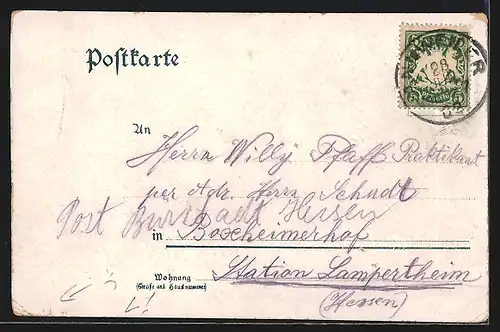 Postkarte
28
An
Herrn Willy Pfaff Praktikant
per Adr. Herrn Schudt
Post Bürstadt Hessen
in Boxheimerhof
Wohnung
(Straße und Hausnummer)
Station Lampertheim
(Hessen)